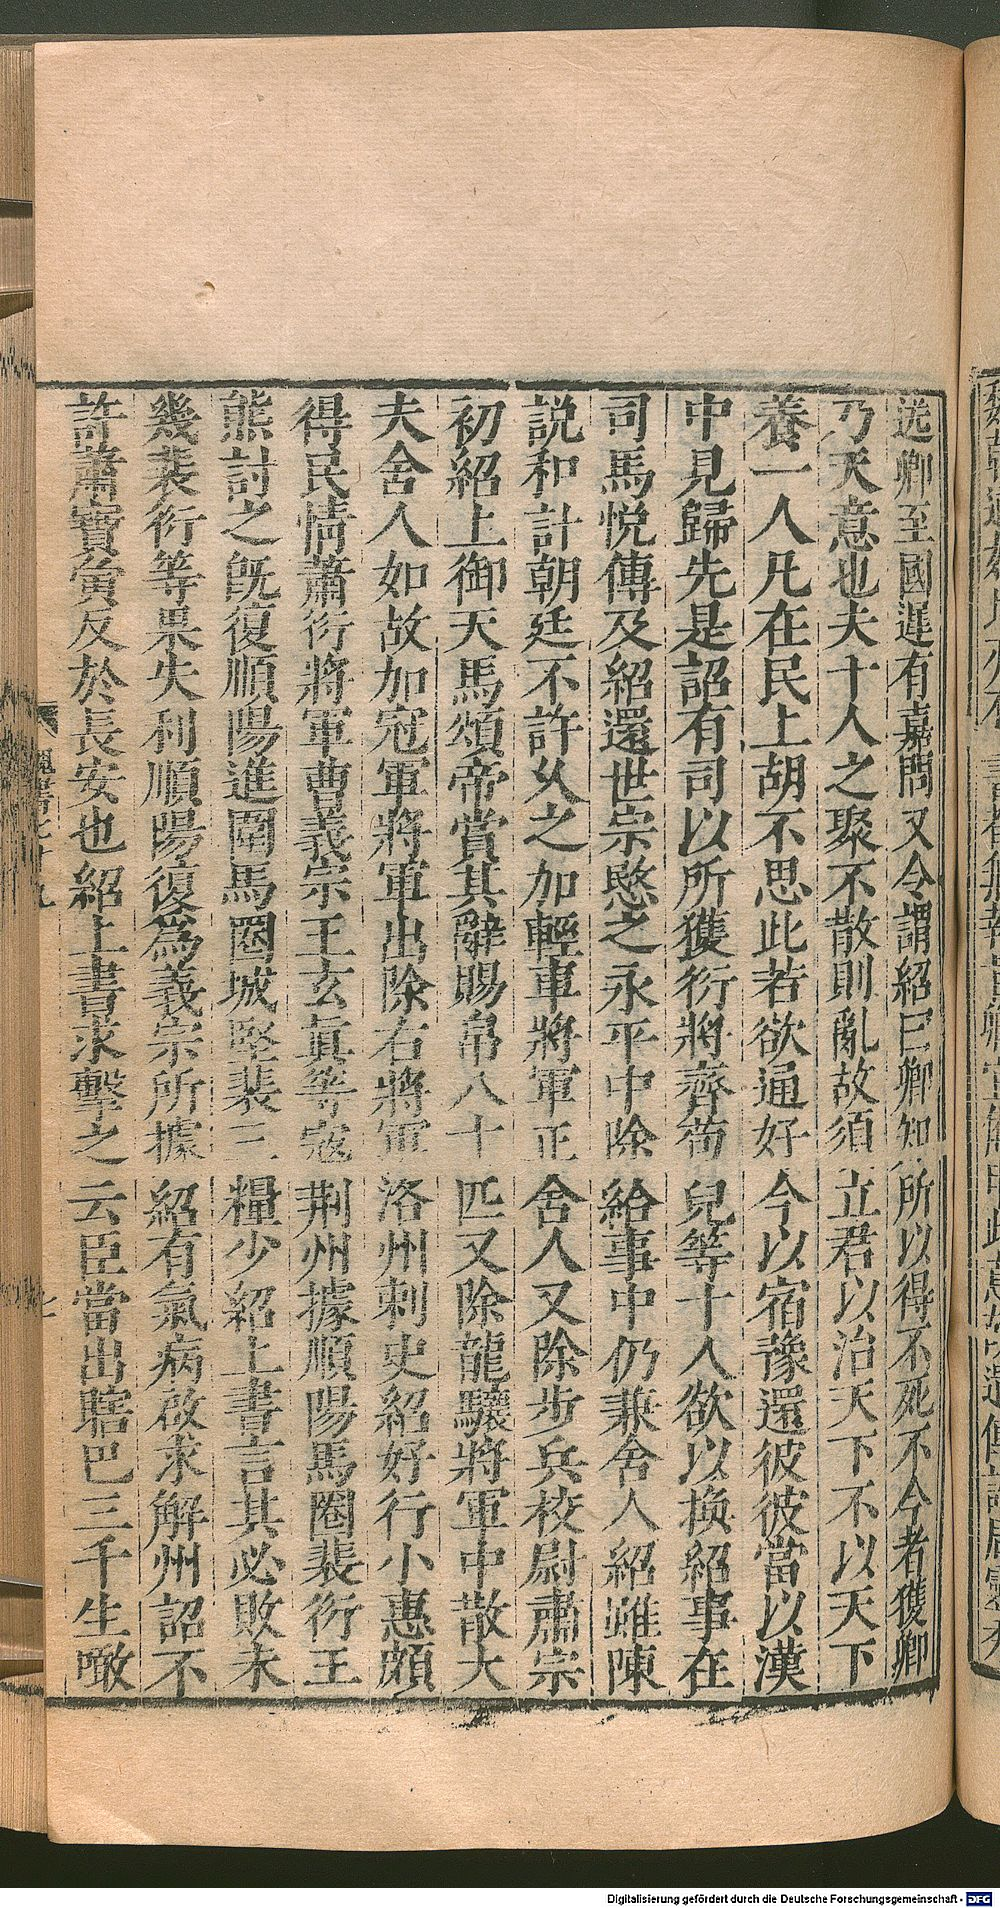 送卿至國遲有嘉問又令謂紹曰卿知所以得不死不今者獲卿
乃天意也夫十人之聚不散則亂故須立君以治天下不以天下
養一人凡在民上胡不思此若欲通好今以宿豫還彼彼當以漢
中見歸先是詔有司以所獲衍將齊苟兒等十人欲以換紹事在
司馬悅傳及紹還世宗愍之永平中除給事中仍兼舍人紹雖陳
説和計朝廷不許久之加輕車將軍正舍人又除步兵校尉肅宗
初紹上御天馬頌帝賞其辭賜帛八十匹又除龍驤將軍中散大
夫舍人如故加冠軍將軍出除右將軍洛州刺史紹好行小惠頗
得民情蕭衍將軍曹義宗王玄眞等寇荆州據順陽馬圈裴衍王
熊討之旣復順陽進圍馬圈城堅裴三糧少紹上書言其必敗未
幾裴衍等果失利順陽復爲義宗所據紹有氣病啟求解州詔不
許蕭寶夤反於長安也紹上書求擊之云臣當出瞎巴三千生噉
魏書七十九
七
Digitalisierung gefördert durch die Deutsche Forschungsgemeinschaft - DFG